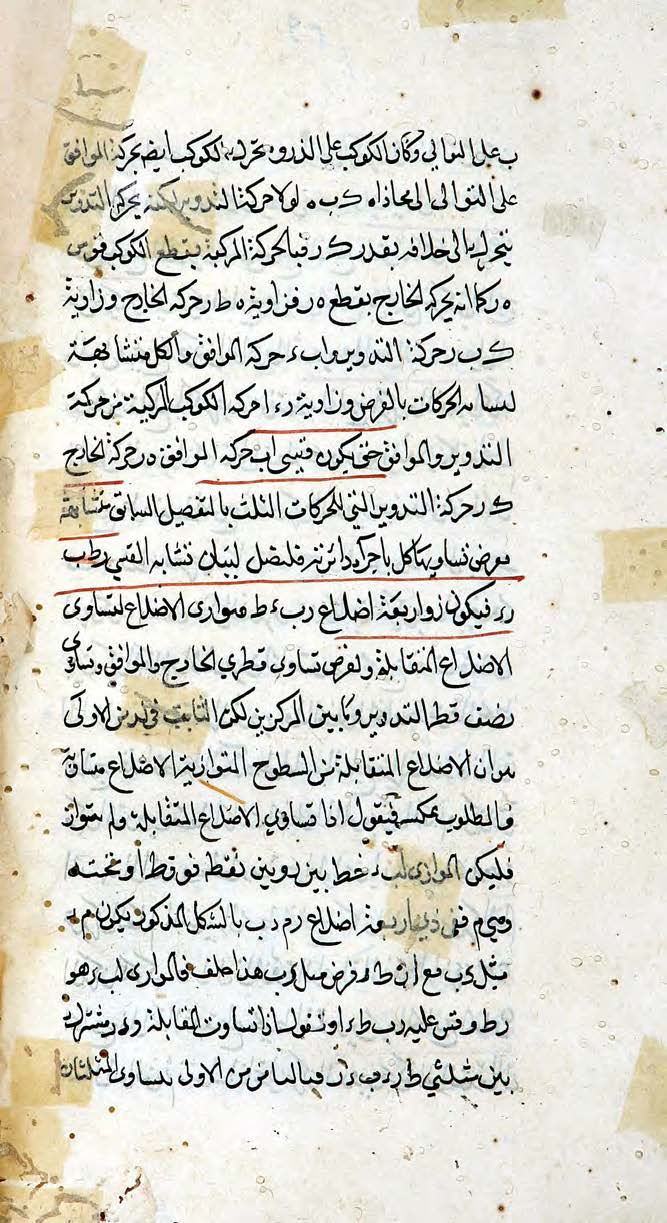 ب على التوالي وكان الكوكب على الذروه تحرك الكوكب ايضا بحركة الموافق
على التوالى الى محاذاه ك ب ه لولا حركة التدوير لكنه بحركة التدوير
يتحرك الى خلافه بقدر ك ر فبالحركة المركبة يقطع الكوكب قوس
ه ر كما انه بحركه الخارج يقطع ه ر فزاوية ه ط ر حركه الخارج وزاوية
ك ب ر حركة التدوير و اب ء حركه الموافق والكل متشابهة
الحركات بالفرض وزاوية ر ء ا حركه الكوكب المركبة من حركة
التدوير والموافق حتى يكون قسى اب حركه الموافق ه ر حركة الخارج
ك ر حركة التدوير التي للحركات الثلث بالتفصيل السابق متشابهة
بفرض تساويها كل باجزآء دائرته فلنصل لبيان تشابه القسي ر ط ب
ر ء فيكون ذو اربعة اضلاع ر ب ء ط متوازى الاضلاع لتساوى
الاضلاع المتقابلة ولفرض تساوى قطري الخارج والموافق وتساوى
نصف قطر التدوير وما بين المركزين لكن الثابت في لد من الاولى
ان الاضلاع المتقابلة من السطوح المتوازية الاضلاع متساوية
والمطلوب عكسه فيقول اذا تساوي الاضلاع المتقابلة ولم يتواز
فليكن الموازى لب ء خطا بين نقطة فوق ط او تحته
وهي م ففي ذي اربعة اضلاع ر م ء ب بالشكل المذكور يكون م ء
مثل ر ب مع ان ط ء فرض مثل ر ب هذا خلف فالموازى لب ء هو
ر ط وقس عليه ر ب ط ء او نقول لما تساوت المتقابلة و ء ر مشترك
بين مثلثي ط ر ء ب ء ر فبالثامن من الاولى يتساوى المثلثان